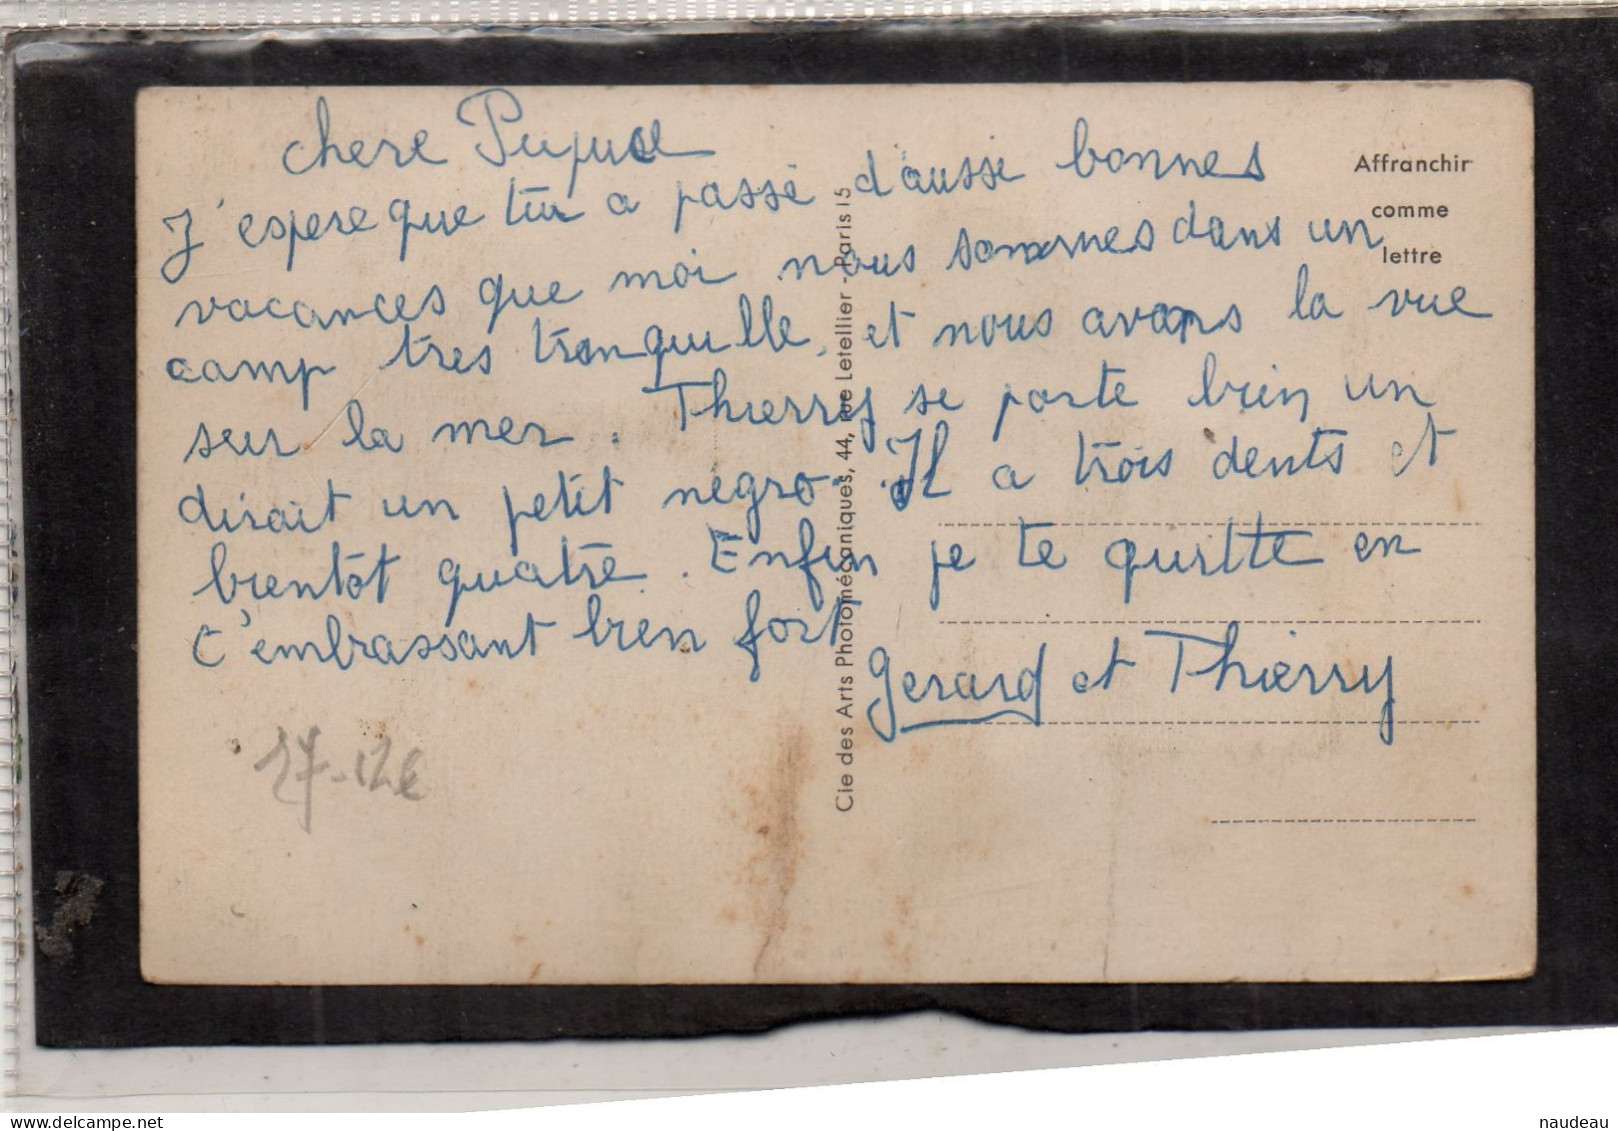 chere
J'espere que tu a passé d'aussi bonnes
vacances que moi nous sommes dans un
camp tres tranquille, et nous avons la vue
sur la mer. Thierry se porte bien un
dirait un petit négro. Il a trois dents et
bientôt quatre. Enfin je te quitte en
t'embrassant bien fort
Gerard et Thierry
Affranchir
comme
lettre
Cie des Arts Photomécaniques, 44, rue Letellier - Paris 15
naudeau